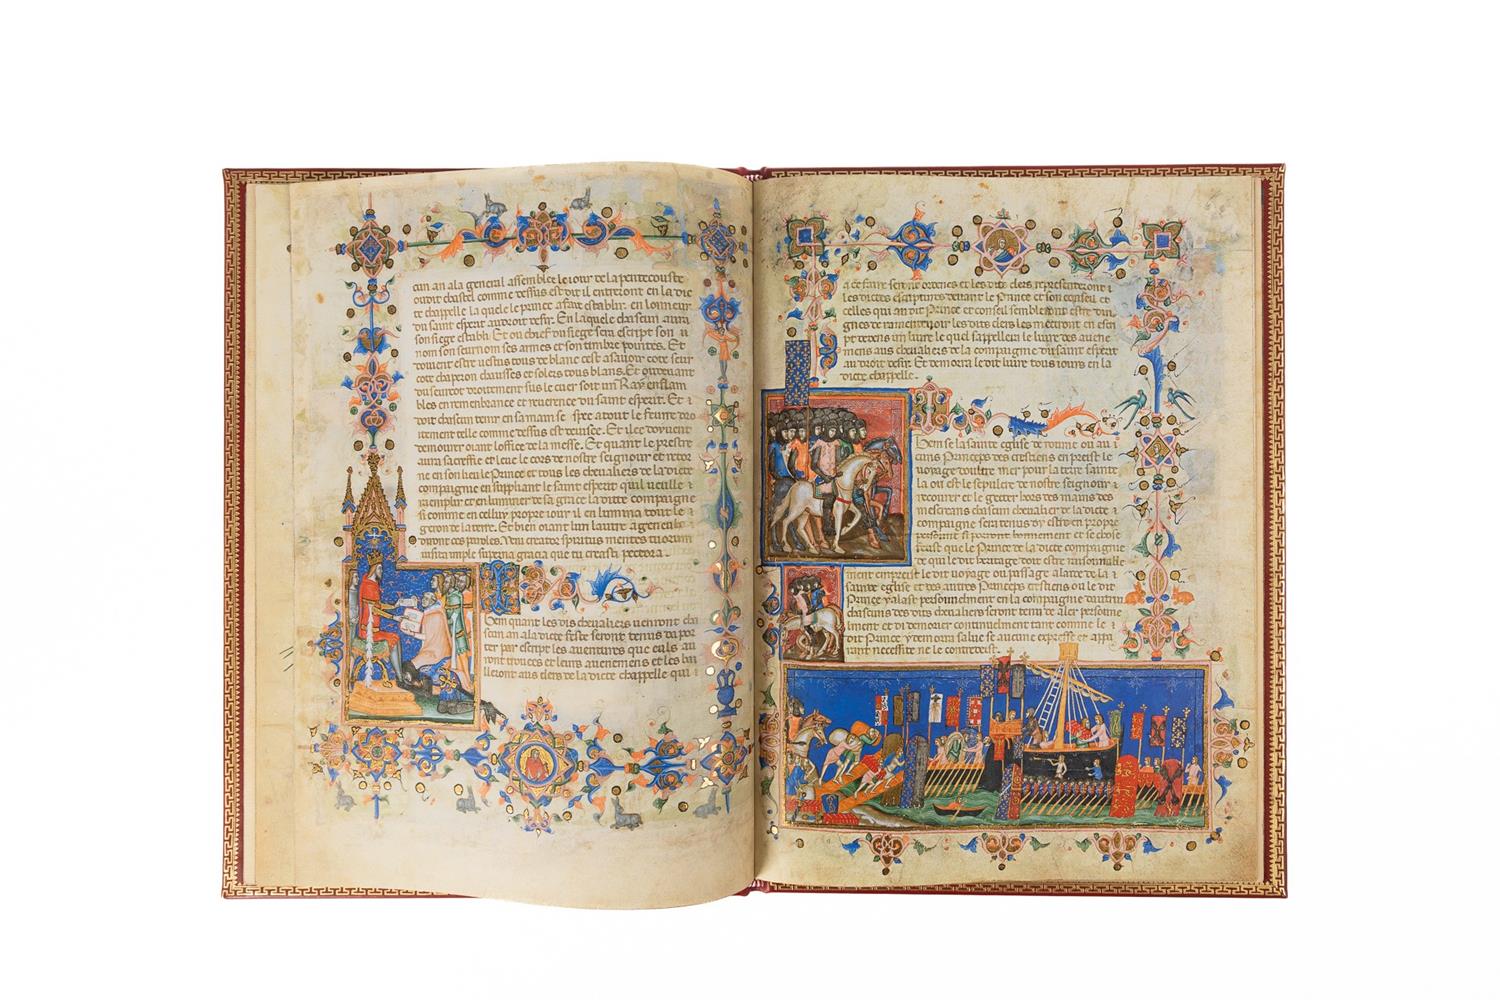 can an ala general assemblee le iour de la pentecouste
ou dit chastel comme dessus est dit il entreront en la dicte
chappelle la quele le prince a faite establir en lonneur
du saint esperit au droit desir. En laquele chascun aura
son siege establi. Et ou chief du siege sera escript son
nom son seurnom ses armes et son timbre pointes. Et
doivent estre vestus tous de blanc cest asavoir cote seur
cote chaperon chausses et solers tous blans. Et
du seurcot
bles en remembrance et reverence du saint esperit. Et
doit chascun tenir en sa main se
tement telle comme dessus est devisee. Et ile doivent
demourer oiant loffice de la messe. Et quant le prestre
aura sacrefie et leue le cors de nostre seigneur et
ne en son lieu le Prince et tous les chevaliers de la dicte
compagnie en suppliant le saint esperit quil vueille
raemplir et enluminer de sa grace la dicte compagnie
si comme en celluy propre iour il en lumina tout le
geron de la terre. Et bien oiant lun lautre agenoille
diront ces paroles. Veni creator spiritus mentes tuorum
visita imple superna gracia que tu creasti pectora.
Item quant les dis chevaliers vendront chascun
an a la dicte feste seront tenus da porter
par escript les aventures que eulz auront
trouees et leurs avenemens et les bailleront
aus clers de la dicte chappelle qui
a ce faire seront ordenes et les dite clers representeront
les dictes escriptures devant le Prince et son conseil et
celles qui au dit Prince et conseil sembleront estre dingnes
de ramentevoir les dits clers les metront en escript
dedens un livre le quel sappellera le livre des avenemens
aus chevaliers de la compaignie du saint esperit
au droit desir. Et demorra le dit livre tous iours en la
dicte chappelle.
Item se la sainte eglise de romme ou aucuns
Princeps des crestiens en preist le
voyage doultre mer pour la terre sainte
la ou est le sepulcre de nostre seigneur
recourer et le getter hors des mains des
mescreans chascun chevalier de la dicte
compagnie sera tenus dy estre en propre
persone si porront bonnement et se chose
estait que le Prince de la dicte compagnie
ment empreist le dit voyage ou passage a laide de la
sainte eglise et des autres Princeps crestiens ou le dit
Prince y alast personelment en la compagnie dautruy
chascuns des dits chevaliers seront tenu de aler personelment
et di demourer continuelment tant comme le
dit Prince y demourra salue se aucune expresse et apparant
necessite ne le contredeist